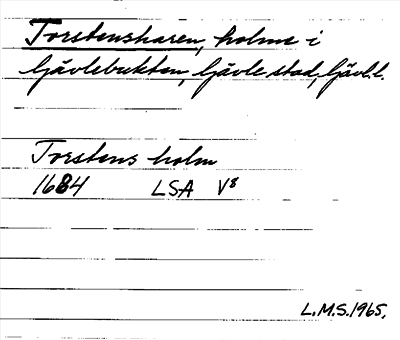 Torstensharen, holme i
Gävlebukten, Gävle stad, Gävl.l.
Torstens holm
1684 LSA V8
L.M.S. 1965.